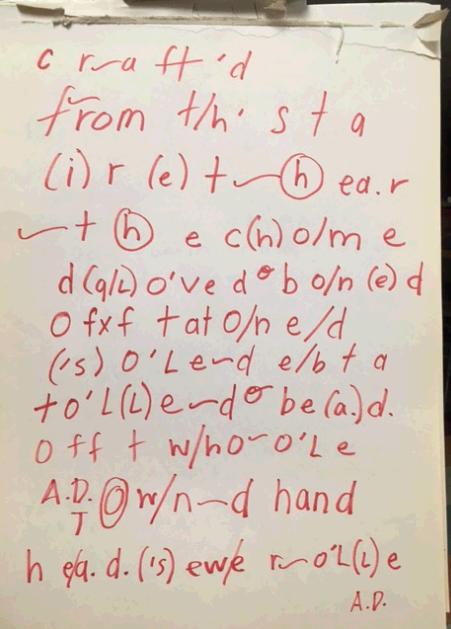 c r~a ft 'd
from t/h' s t a
(i) r (e) t ~ (h) ea.r
~ t (h) e c(h) o/m e
d (g/L) o've d o b o/n (e) d
O fxf t at O/n e/d
('s) O'L e~d e/b t a
t o'L(L) e~d o be (a.) d.
O ff t w/h O~O'L e
A.D. T (O) w/n~d hand
h e/a. d. ('s) ew/e r~o'L(L) e
A.D.